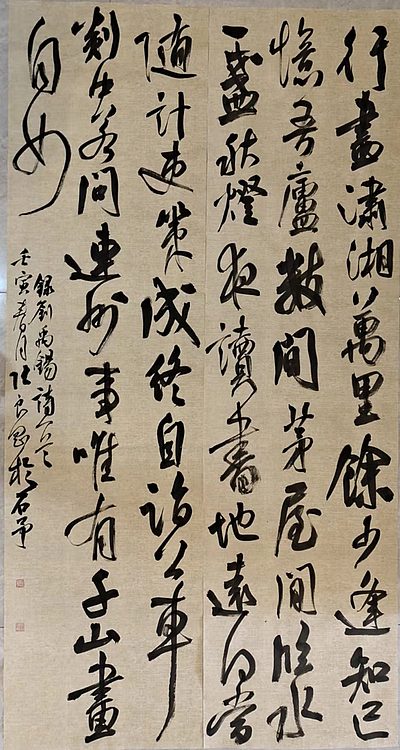 行盡瀟湘萬里餘少逢知己
憶吾廬數間茅屋閒臨水
一盞秋燈夜讀書地遠何當
隨計吏策成終自詣公車
剡中若問連州事唯有千山畫
不如
錄劉禹錫詩
壬寅春月